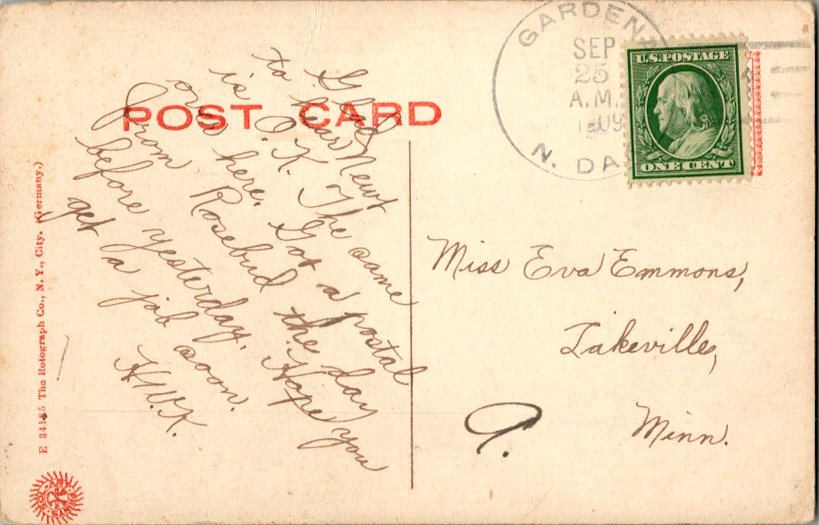 POST CARD
GARDEN
SEP
25
A.M.
1909
N. DA
U.S. POSTAGE
ONE CENT
Glad
to hear Newt
is O.K. The same
over here. Got a postal
from Rosebud the day
before yesterday. Hope you
get a job soon.
H.W.K.
Miss Eva Emmons,
Lakeville,
Minn.
E 34185 The Rotograph Co., N. Y., City. (Germany.)